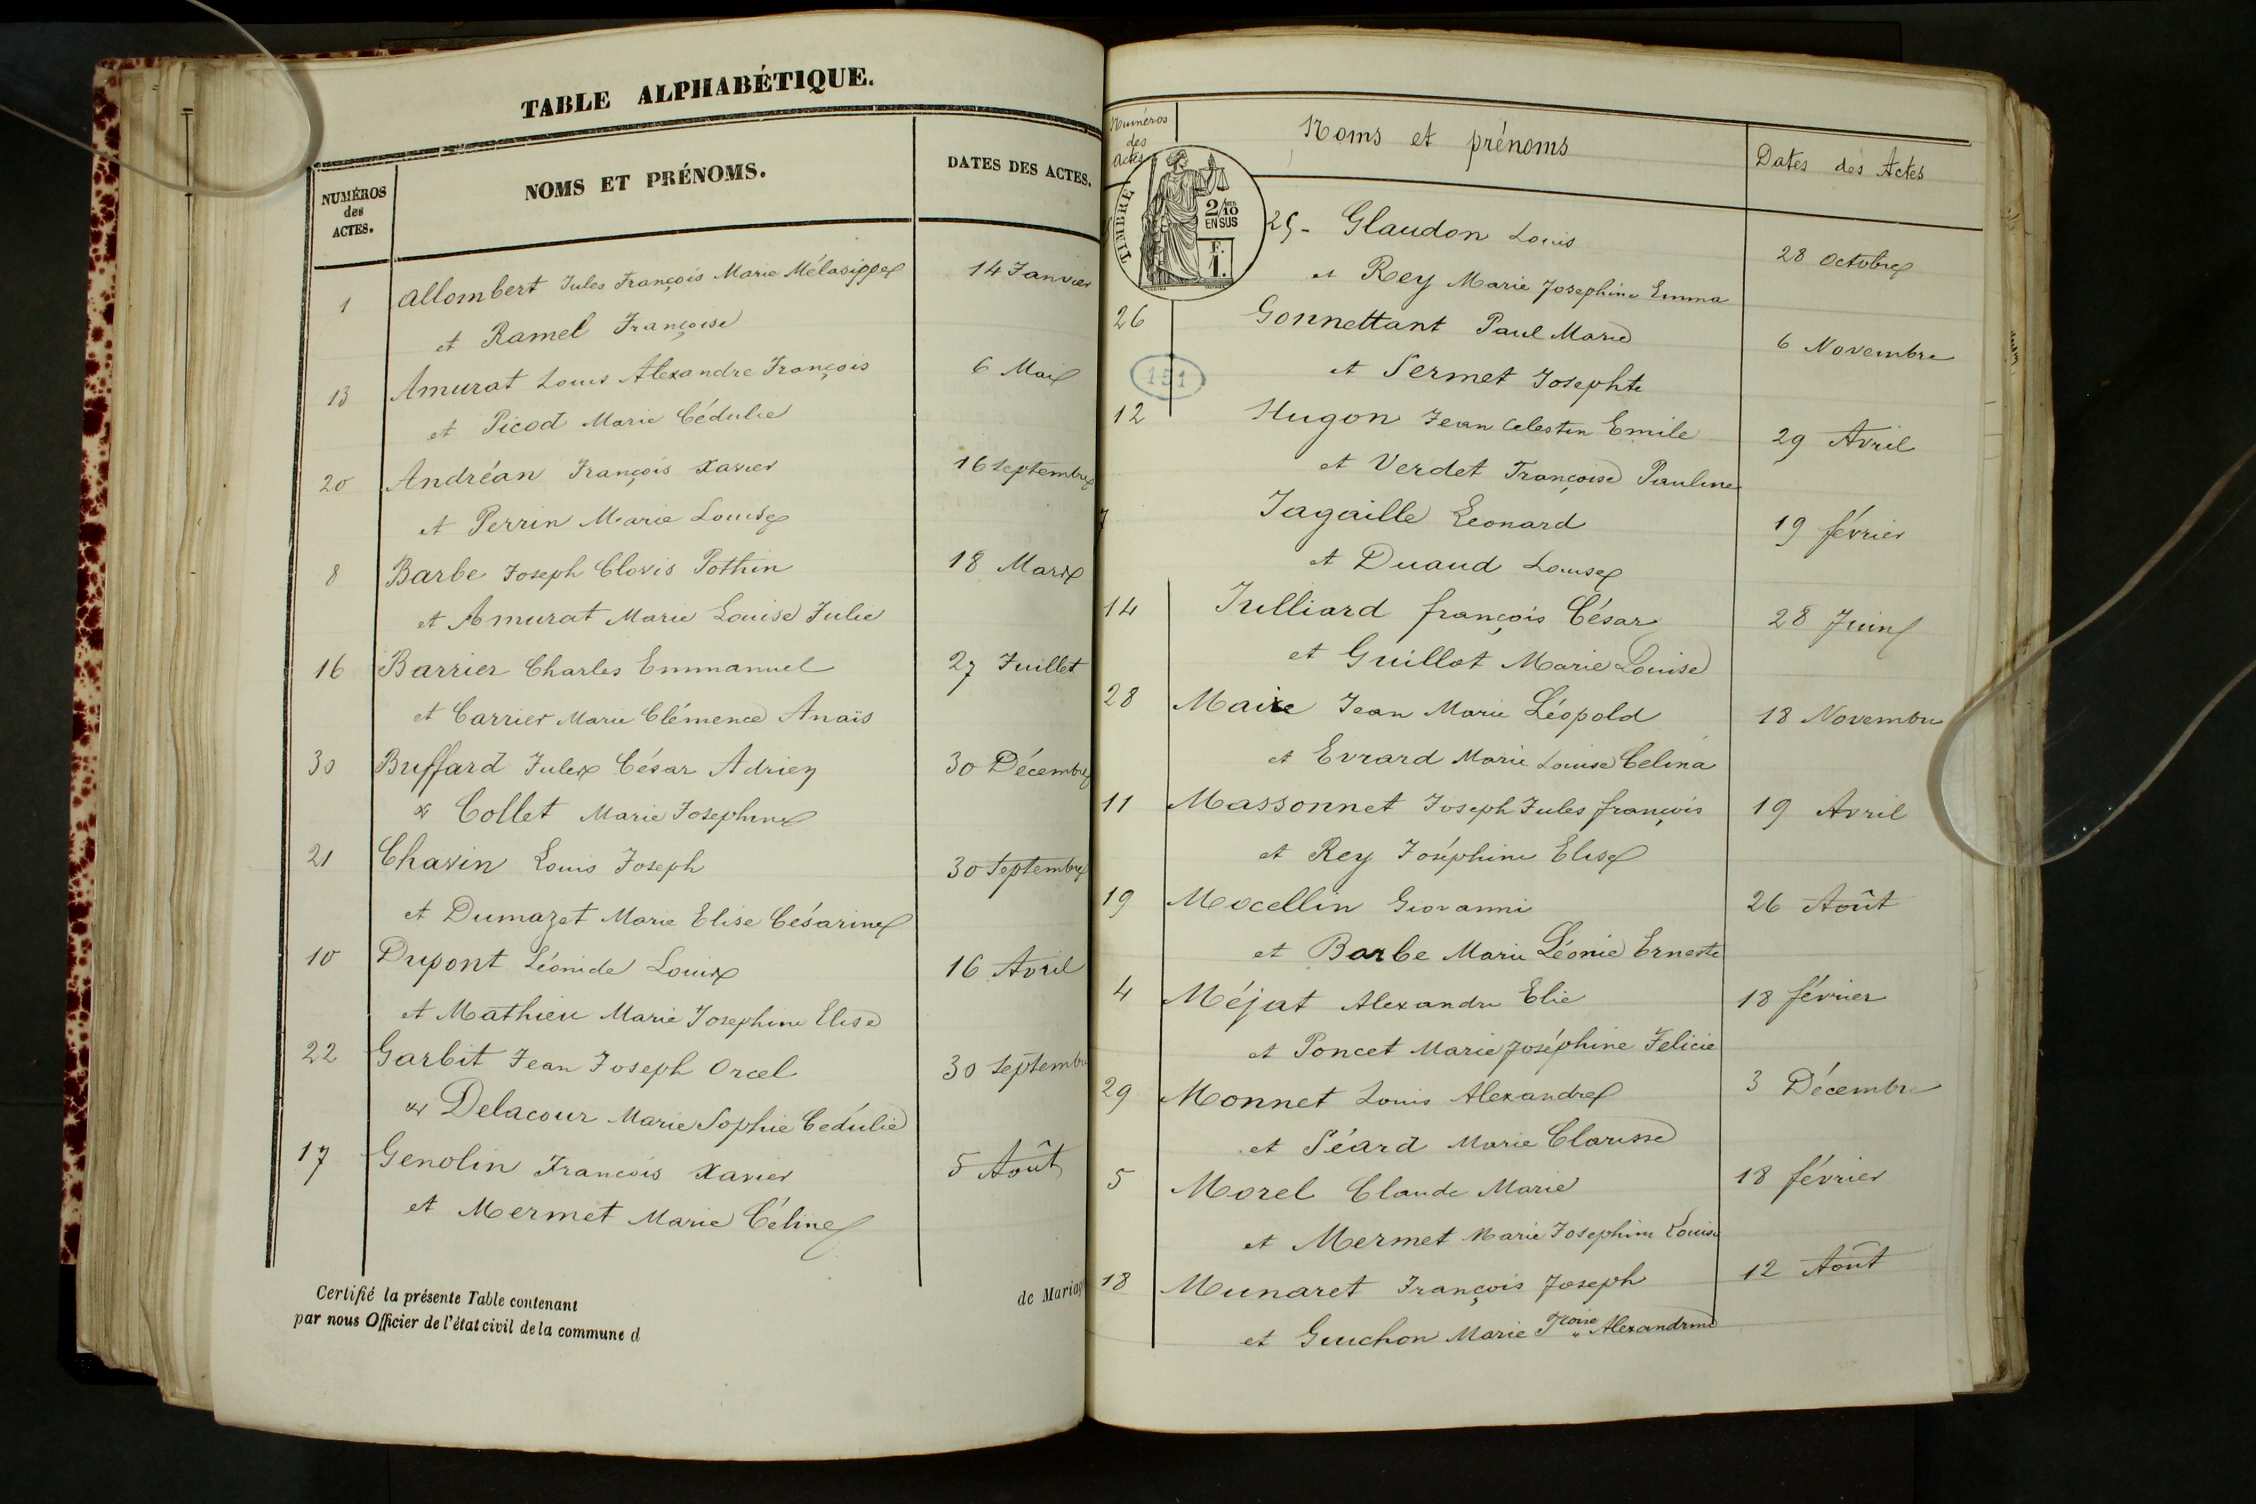 TABLE ALPHABÉTIQUE.
NUMÉROS
des
ACTES.
NOMS ET PRÉNOMS.
DATES DES ACTES.
1 Allombert Jules François Marie Mélasippe 14 Janvier
et Ramel Françoise
13 Amurat Louis Alexandre François 6 Mai
et Picod Marie Cédulie
20 Andréan François Xavier 16 septembre
et Perrin Marie Louise
8 Barbe Joseph Clovis Pothin 18 Mars
et Amurat Marie Louise Julie
16 Barrier Charles Emmanuel 27 Juillet
et Carrier Marie Clémence Anaïs
30 Buffard Jules César Adrien 30 Décembre
& Collet Marie Josephine
21 Chavin Louis Joseph 30 Septembre
et Dumazet Marie Elise Césarine
10 Dupont Léonide Louis 16 Avril
et Mathieu Marie Josephine Elise
22 Garbit Jean Joseph Orcel 30 septembre
& Delacour Marie Sophie Cédulie
17 Genolin François Xavier 5 Août
et Mermet Marie Céline
Certifié la présente Table contenant de Mariag
par nous Officier de l'état civil de la commune d
Numéros
des
Actes
Noms et prénoms
Dates des Actes
TIMBRE
2/10
EN SUS
F.
1.
25- Glaudon Louis 28 octobre
et Rey Marie Josephine Emma
26 Gonnettant Paul Marie 6 Novembre
151
et Sermet Josephte
12 Hugon Jean Celestin Emile 29 Avril
et Verdet Françoise Pauline
7 Jagaille Leonard 19 février
et Duaud Louise
14 Julliard françois César 28 Juin
et Guillot Marie Louise
28 Maire Jean Marie Léopold 18 Novembre
et Evrard Marie Louise Celina
11 Massonnet Joseph Jules françois 19 Avril
et Rey Joséphine Elise
19 Mocellin Giovanni 26 Août
et Barbe Marie Léonie Ernestine
4 Méjat Alexandre Elie 18 février
et Poncet Marie Joséphine Felicie
29 Monnet Louis Alexandre 3 Décembre
et Péard Marie Clarisse
5 Morel Claude Marie 18 février
et Mermet Marie Josephine Louise
18 Munaret François Joseph 12 Août
et Guichon Marie Alexandrine